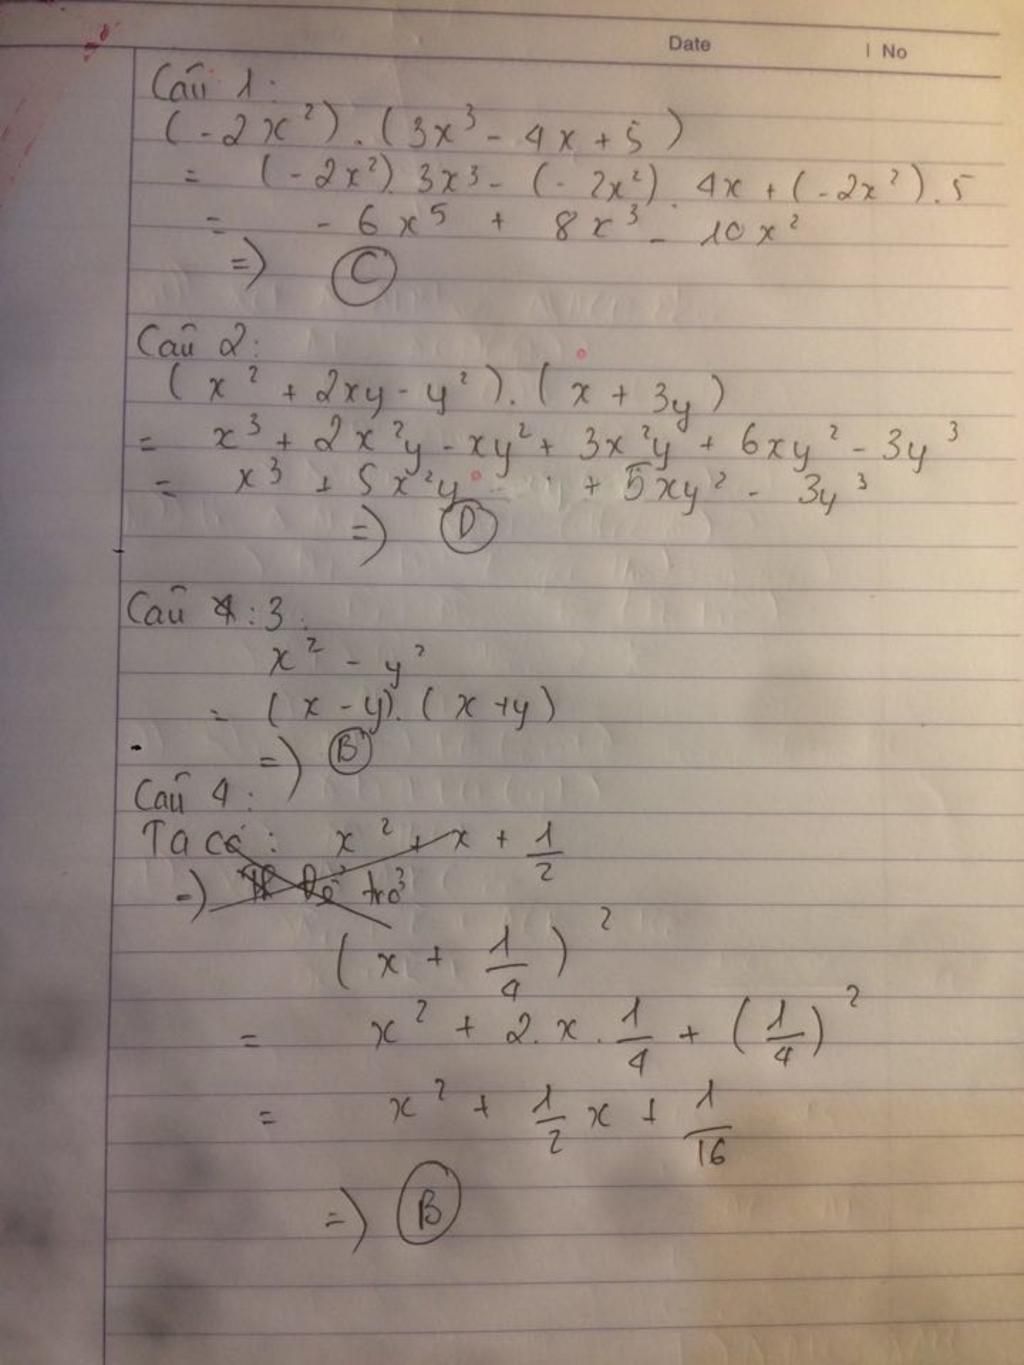 Date | No
Câu 1:
(-2x²).(3x³ - 4x + 5)
= (-2x²).3x³ - (-2x²).4x + (-2x²).5
= -6x⁵ + 8x³ - 10x²
=) C
Câu 2:
(x² + 2xy - y²).(x + 3y)
= x³ + 2x²y - xy² + 3x²y + 6xy² - 3y³
= x³ + 5x²y + 5xy² - 3y³
=) D
Câu 4: 3:
x² - y²
= (x - y).(x + y)
=) B
Câu 4:
Ta có: x² + x + 1/2
=) trở
(x + 1/4)²
= x² + 2.x.1/4 + (1/4)²
= x² + 1/2 x + 1/16
=) B